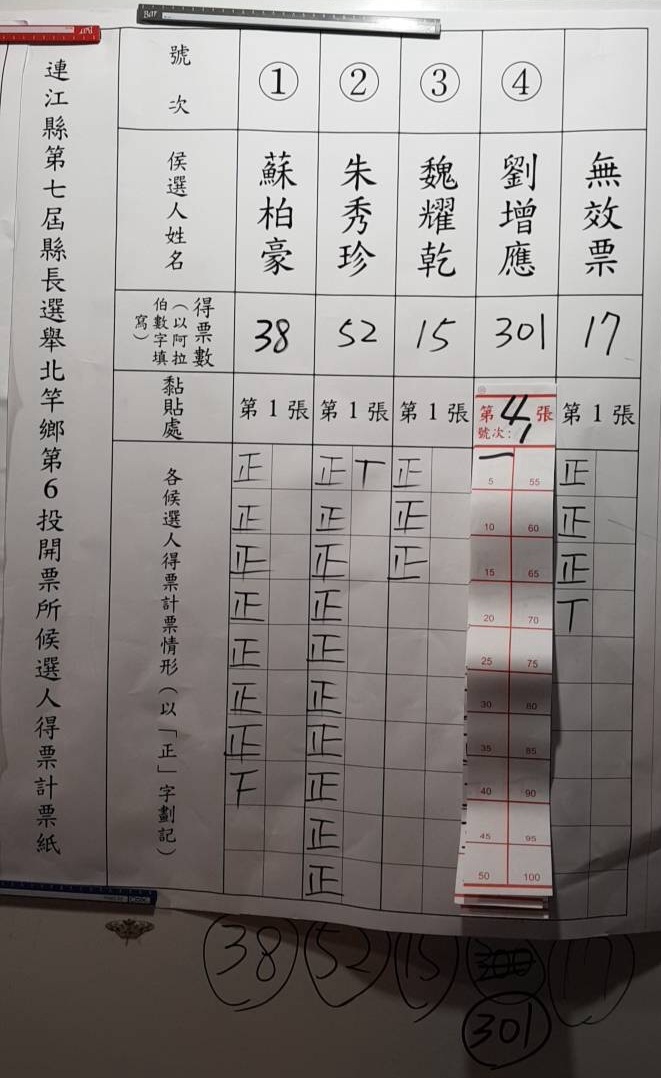 連江縣第七屆縣長選舉北竿鄉第6投開票所候選人得票計票紙
號次 ① ② ③ ④
候選人姓名 蘇柏豪 朱秀珍 魏耀乾 劉增應 無效票
得票數（以阿拉伯數字填寫） 38 52 15 301 17
黏貼處 第1張 第1張 第1張 第4張 第1張
號次：
各候選人得票計票情形（以「正」字劃記）
正 正 丅 正 一 5 55 正
正 正 正 10 60 正
正 正 正 15 65 正
正 正 20 70 丅
正 正 25 75
正 正 30 80
正 正 35 85
下 正 40 90
正 45 95
正 50 100
38 52 15 300 17
301